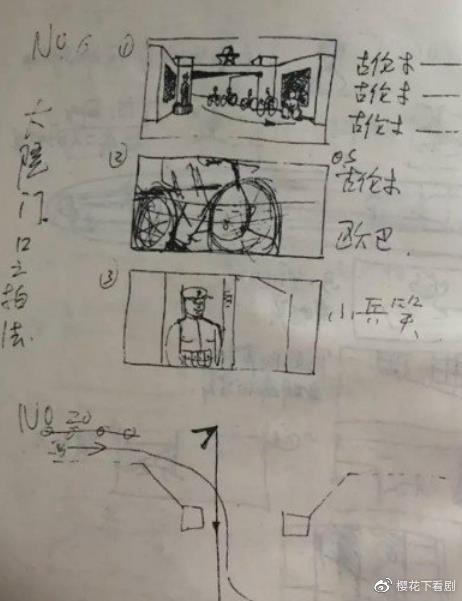 No. 6
大院门口之拍法
①
古伦木——
古伦木——
古伦木——
②
O.S
古伦木
欧巴
③
小兵哭
No 20
@樱花下看剧